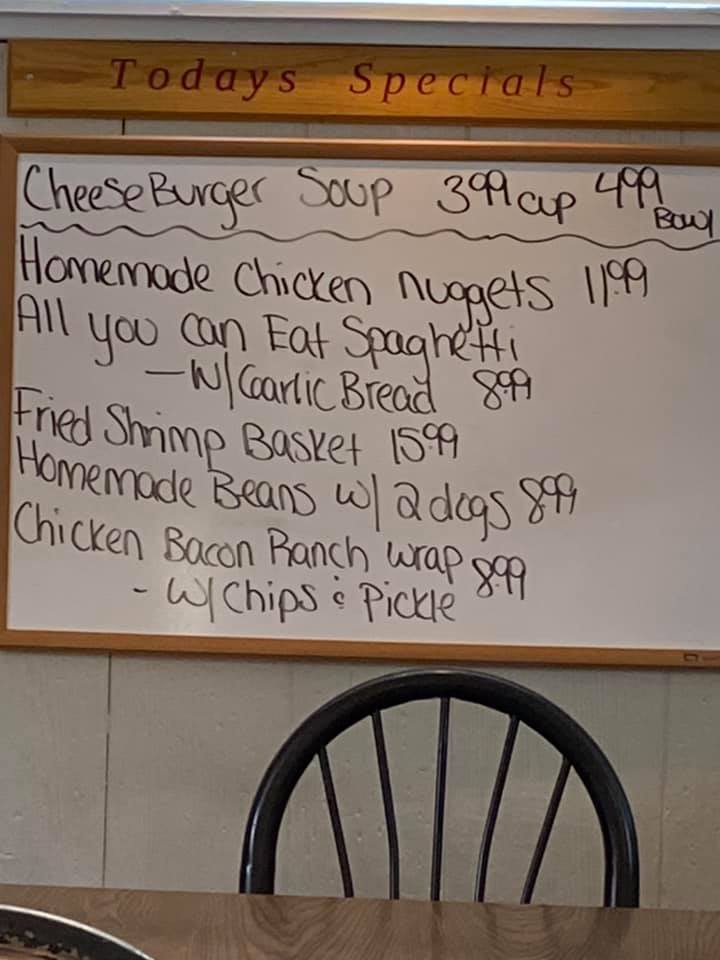 Todays Specials
CheeseBurger Soup 3.99 cup 4.99 Bowl
Homemade Chicken nuggets 11.99
All you can Eat Spaghetti
- W/Garlic Bread 8.99
Fried Shrimp Basket 15.99
Homemade Beans w/ 2 dogs 8.99
Chicken Bacon Ranch wrap 8.99
- W/Chips & Pickle